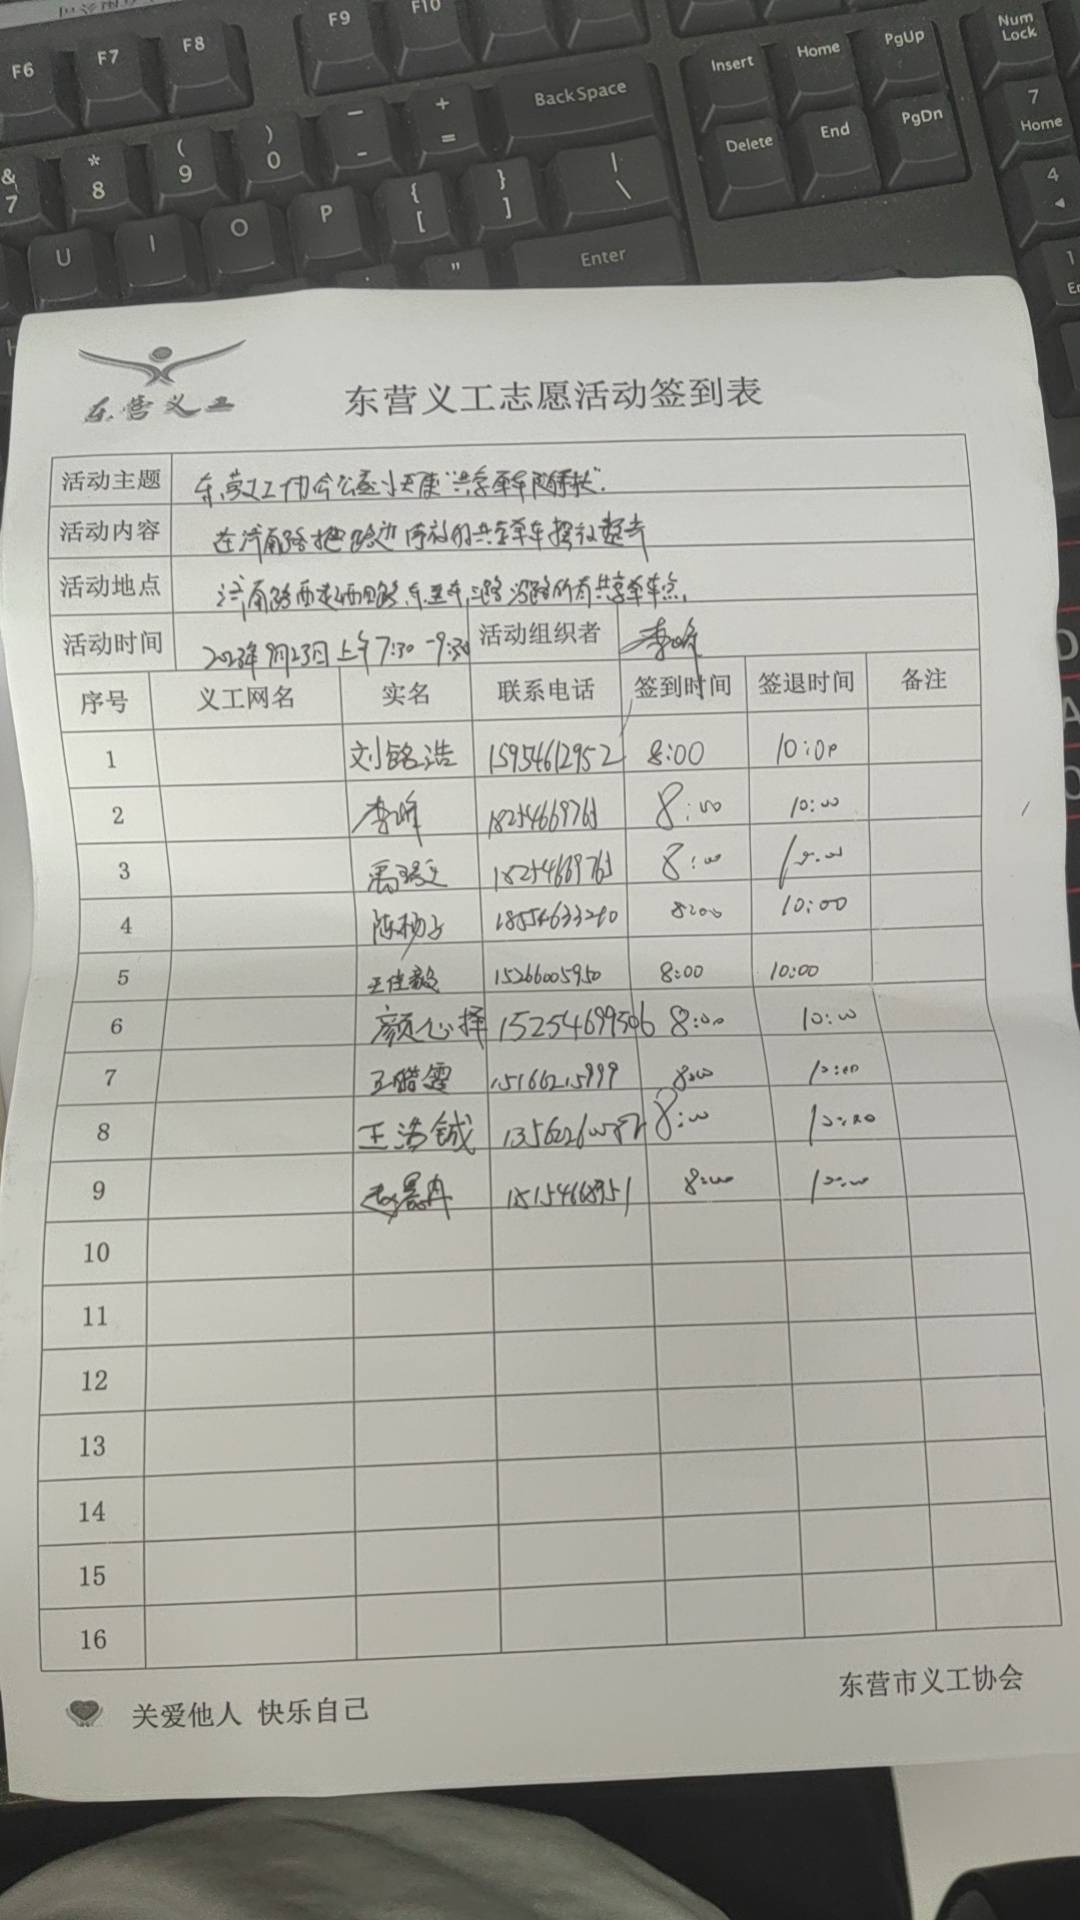 F6 F7 F8 F9 F10
Insert Home PgUp Num Lock
Delete End PgDn 7 Home
& 7 * 8 ( 9 ) 0 — - + = BackSpace
4
U I O P { [ } ] | \
" Enter
1
东营义工
东营义工志愿活动签到表
活动主题 东营义工协会公益小天使"共享单车随手扶".
活动内容 在济南路把路边停放的共享单车摆放整齐
活动地点 济南路西起西四路,东至东三路沿路所有共享单车点.
活动时间 2023年9月23日上午7:30-9:30 活动组织者 李峰
序号 义工网名 实名 联系电话 签到时间 签退时间 备注
1 刘铭浩 15954612952 8:00 10:00
2 李峰 18254669765 8:00 10:00
3 18254669765 8:00 10:00
4 陈杨子 8:00 10:00
5 王佳毅 15266005950 8:00 10:00
6 颜心择 15254699506 8:00 10:00
7 王皓雯 15166215999 8:00 10:00
8 王浩铖 8:00 10:00
9 赵景冉 8:00 10:00
10
11
12
13
14
15
16
关爱他人 快乐自己
东营市义工协会